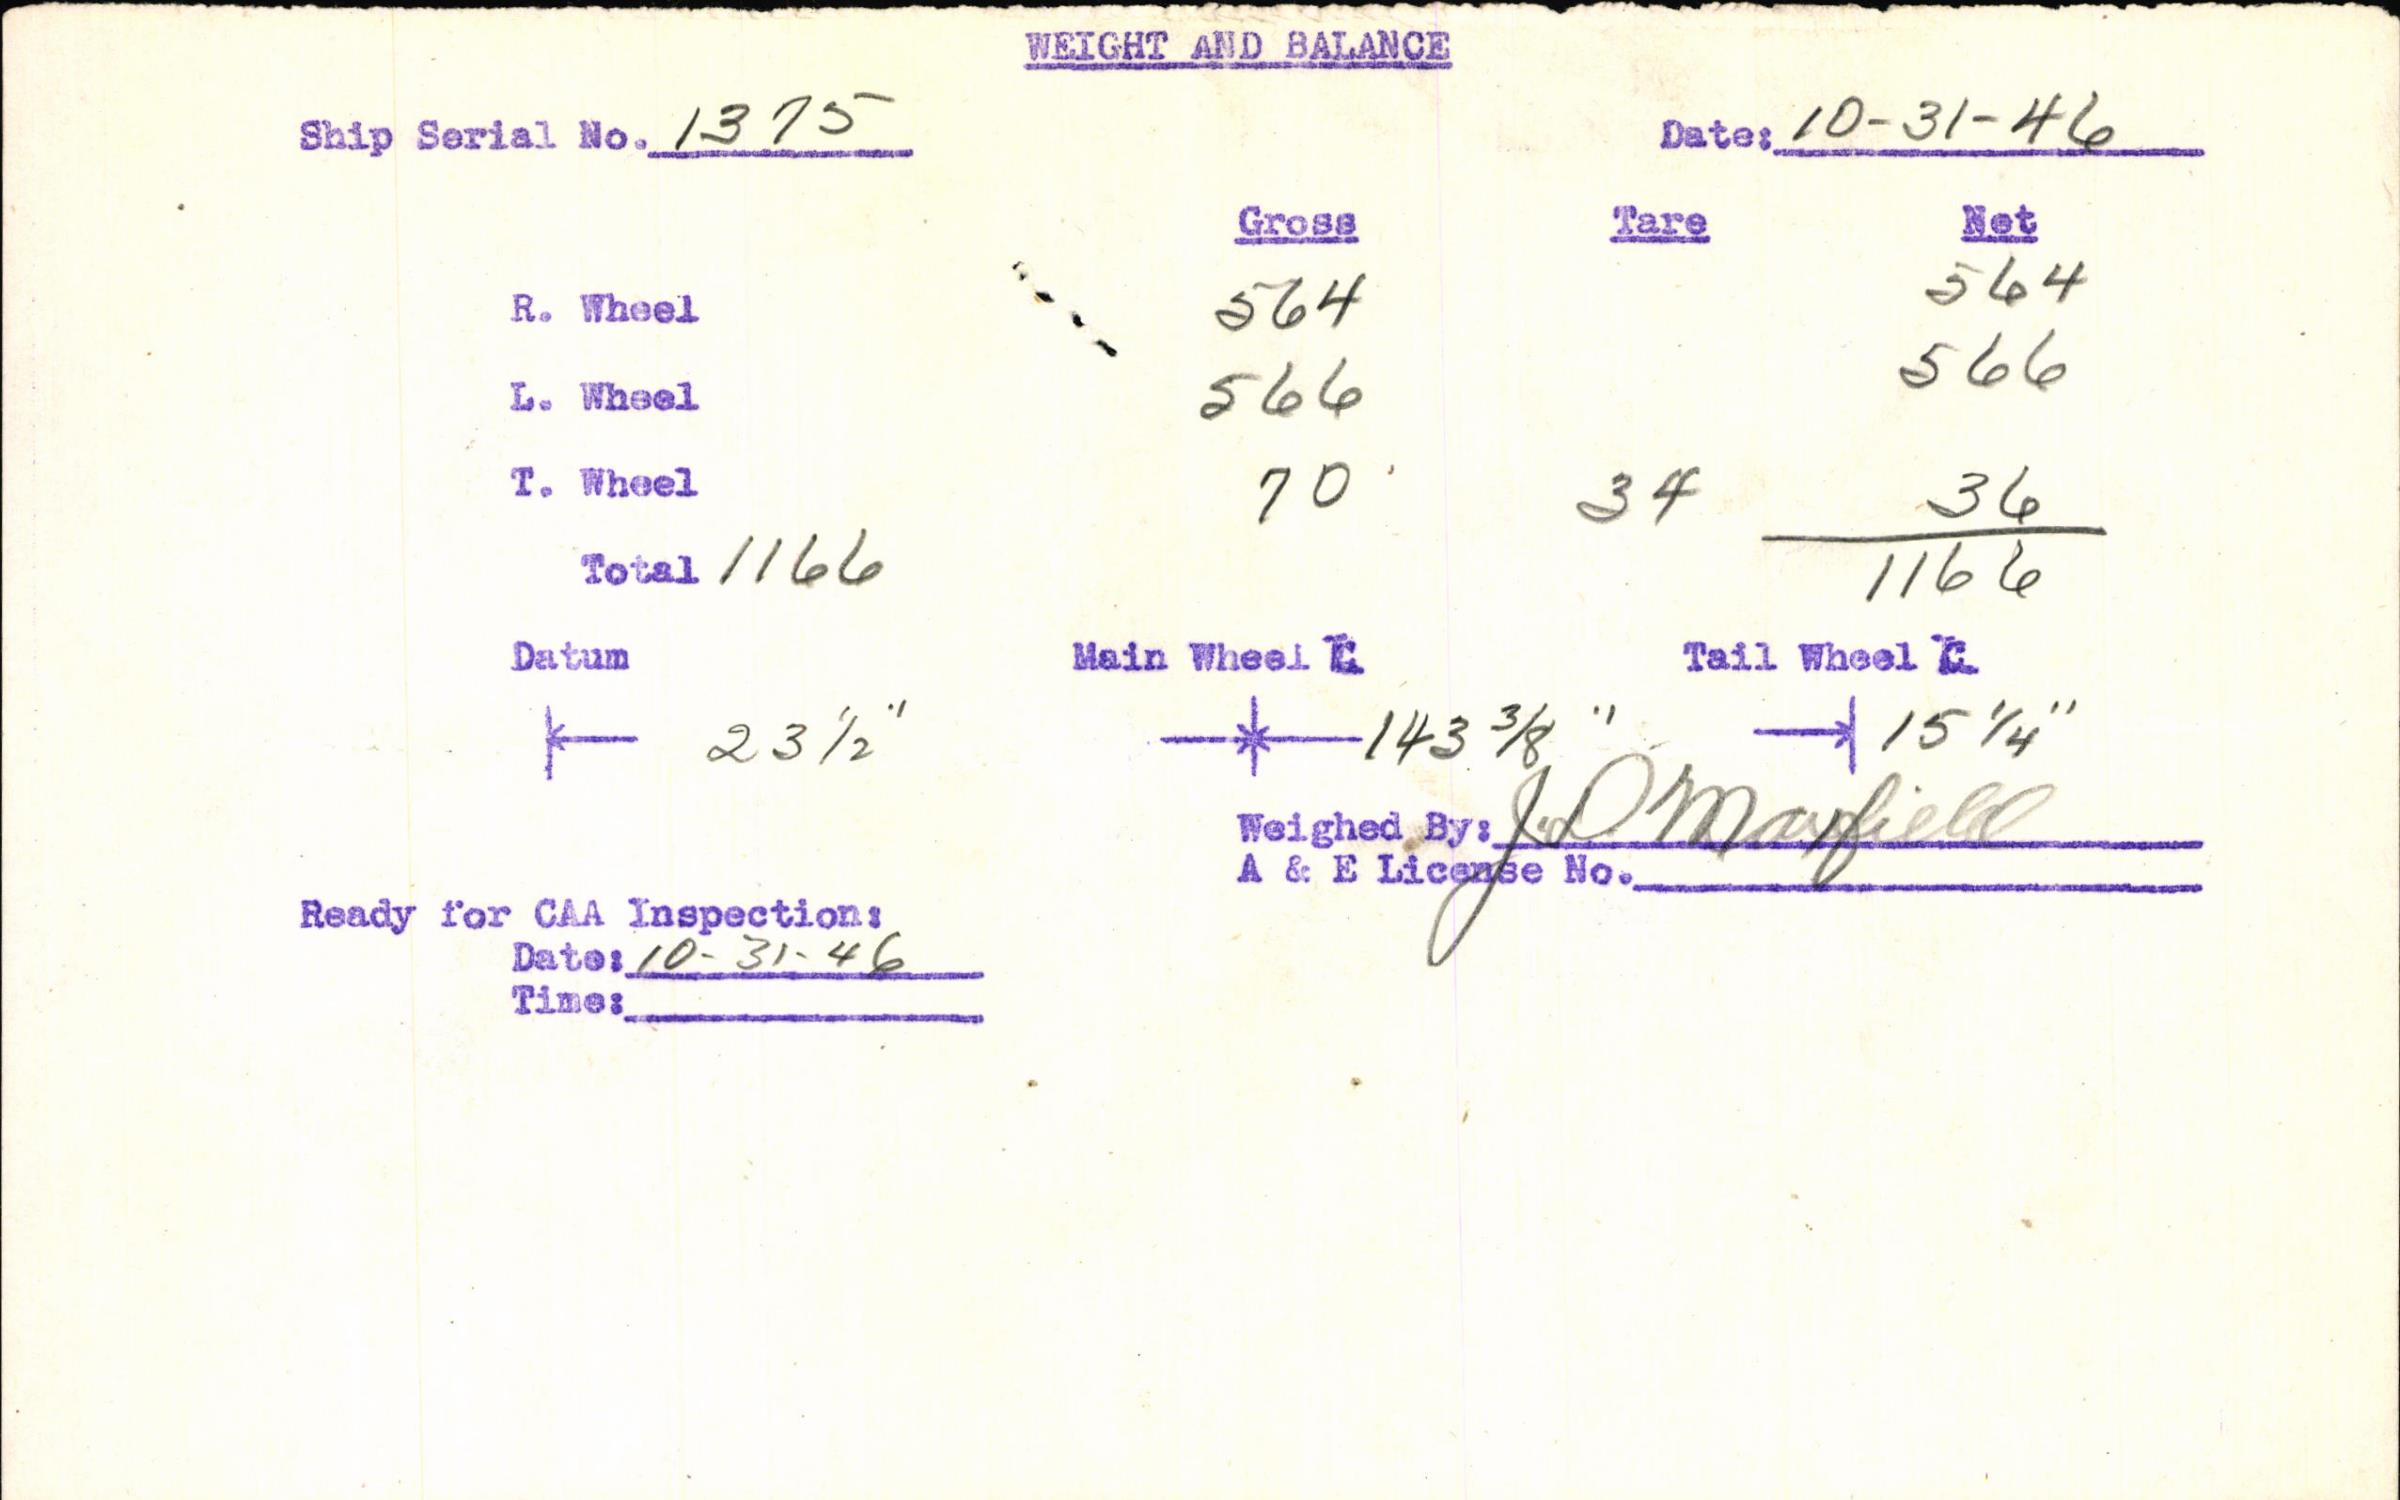 WEIGHT AND BALANCE
Ship Serial No. 1375 Date: 10-31-46
Gross Tare Net
R. Wheel 564 564
L. Wheel 566 566
T. Wheel 70 34 36
Total 1166 1166
Datum Main Wheel ℄ Tail Wheel ℄
23 1/2" 143 3/8" 15 1/4"
Weighed By: J.D. Maxfield
A & E License No.
Ready for CAA Inspection:
Date: 10-31-46
Time: